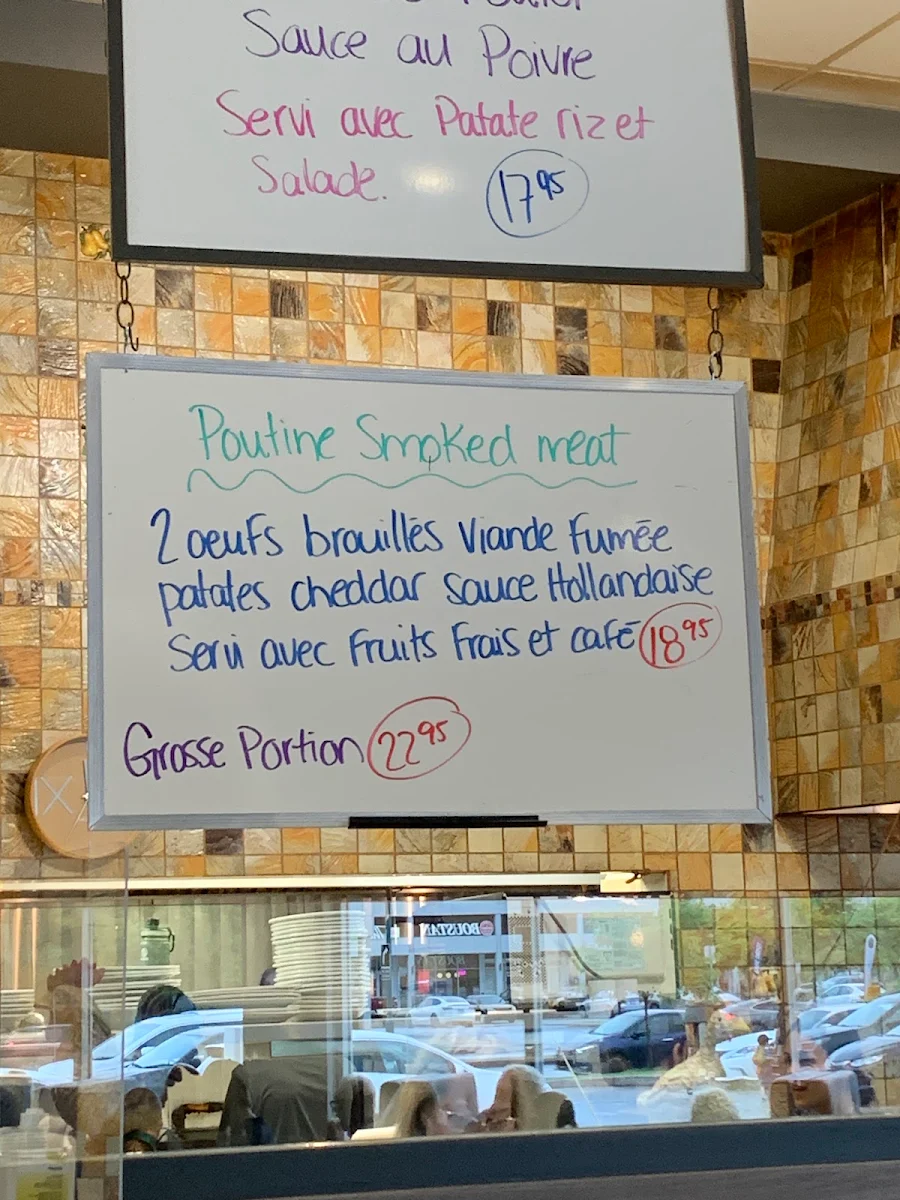 Sauce au Poivre
Servi avec Patate riz et
Salade. 17 95
Poutine Smoked meat
2 oeufs brouillés Viande Fumée
patates cheddar sauce Hollandaise
Servi avec Fruits Frais et café 18 95
Grosse Portion 22 95
BOUSTAN